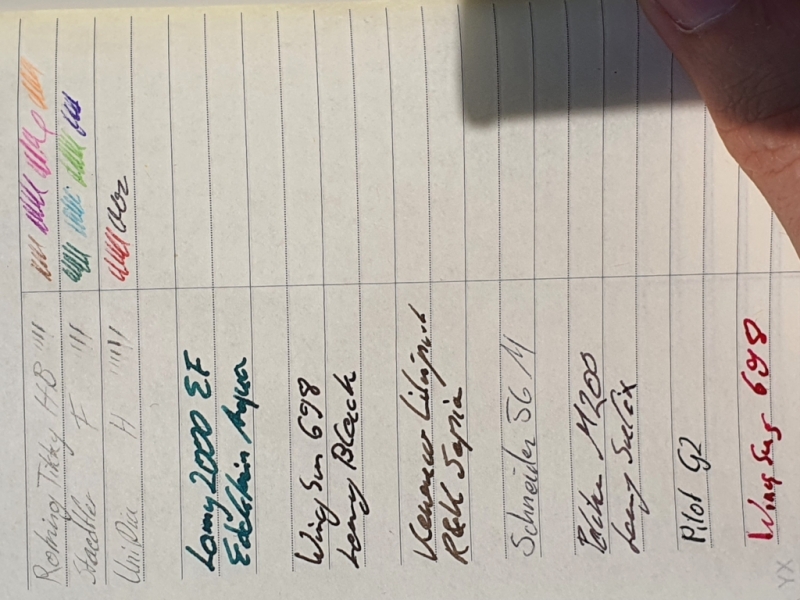 Rotring Tikky HB
Staedtler F
Uni Dia H
Lamy 2000 EF
Edelstein Aqua
Wing Sun 698
Lamy Black
Kaweco Liliput
R&K Sepia
Schneider SG M
Pelikan M200
Lamy
Pilot G2
Wing Sung 698
YX